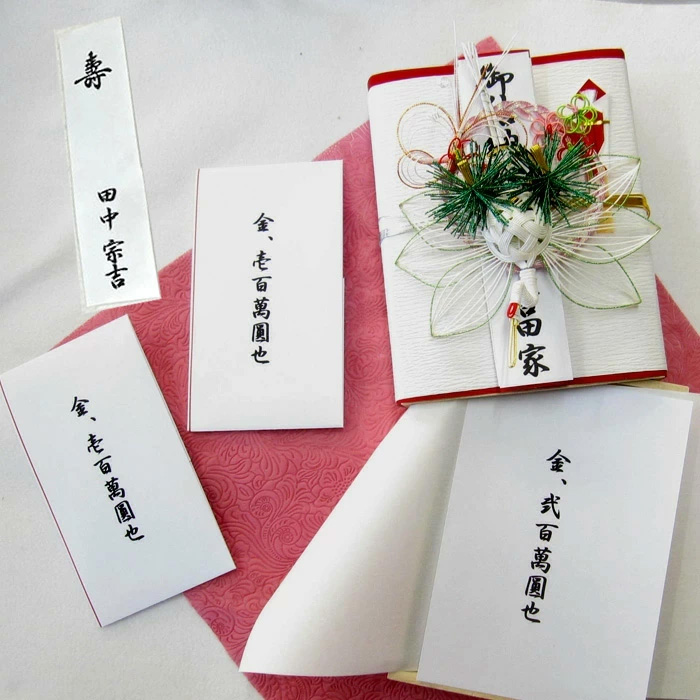 寿
田中宗吉
金、壱百萬圓也
金、壱百萬圓也
御
家
金、弐百萬圓也